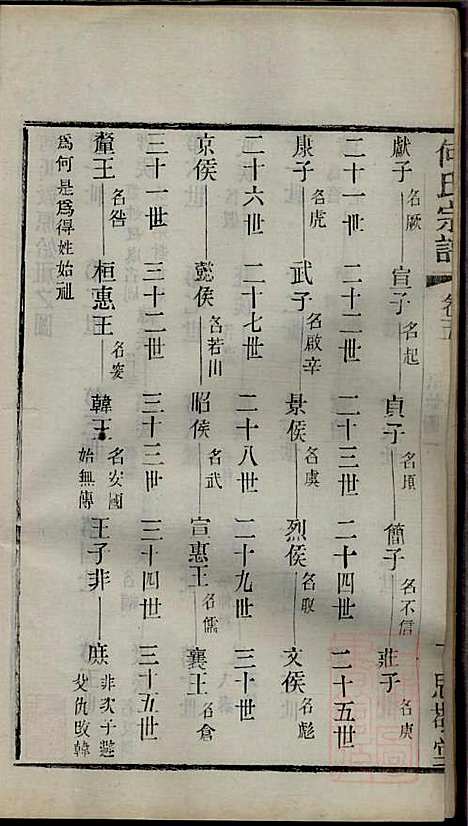 何氏宗譜 卷五
獻子 名厥 宣子 名起 貞子 名頃 簡子 名不信 莊子 名庚
二十一世 二十二世 二十三世 二十四世 二十五世
康子 名虎 武子 名啟章 景侯 名虔 烈侯 名取 文侯 名彪
二十六世 二十七世 二十八世 二十九世 三十世
哀侯 懿侯 名若山 昭侯 名武 宣惠王 名儒 襄王 名倉
三十一世 三十二世 三十三世 三十四世 三十五世
釐王 名咎 桓惠王 名安 韓王 名安國 始無傳 王子非 庶 非次子避 父仇改韓
為何是為得姓始祖